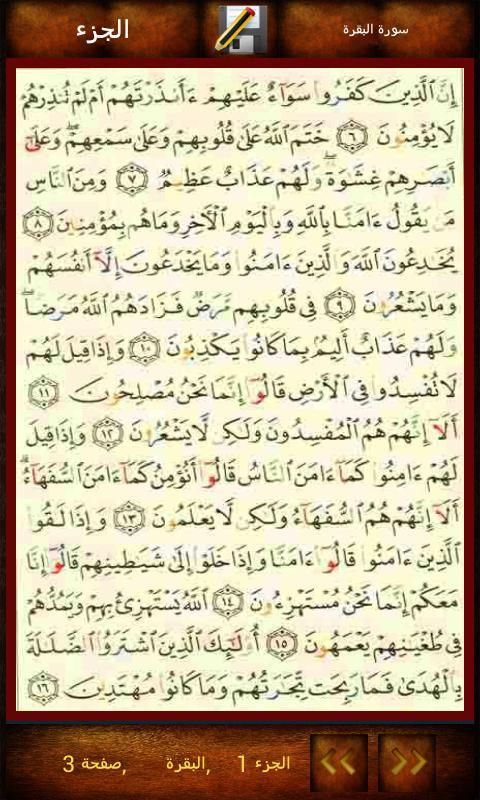 سورة البقرة
الجزء
إِنَّ ٱلَّذِينَ كَفَرُوا۟ سَوَآءٌ عَلَيْهِمْ ءَأَنذَرْتَهُمْ أَمْ لَمْ تُنذِرْهُمْ
لَا يُؤْمِنُونَ ٦ خَتَمَ ٱللَّهُ عَلَىٰ قُلُوبِهِمْ وَعَلَىٰ سَمْعِهِمْ ۖ وَعَلَىٰٓ
أَبْصَـٰرِهِمْ غِشَـٰوَةٌ ۖ وَلَهُمْ عَذَابٌ عَظِيمٌ ٧ وَمِنَ ٱلنَّاسِ
مَن يَقُولُ ءَامَنَّا بِٱللَّهِ وَبِٱلْيَوْمِ ٱلْـَٔاخِرِ وَمَا هُم بِمُؤْمِنِينَ ٨
يُخَـٰدِعُونَ ٱللَّهَ وَٱلَّذِينَ ءَامَنُوا۟ وَمَا يَخْدَعُونَ إِلَّآ أَنفُسَهُمْ
وَمَا يَشْعُرُونَ ٩ فِى قُلُوبِهِم مَّرَضٌ فَزَادَهُمُ ٱللَّهُ مَرَضًا ۖ
وَلَهُمْ عَذَابٌ أَلِيمٌۢ بِمَا كَانُوا۟ يَكْذِبُونَ ١٠ وَإِذَا قِيلَ لَهُمْ
لَا تُفْسِدُوا۟ فِى ٱلْأَرْضِ قَالُوٓا۟ إِنَّمَا نَحْنُ مُصْلِحُونَ ١١
أَلَآ إِنَّهُمْ هُمُ ٱلْمُفْسِدُونَ وَلَـٰكِن لَّا يَشْعُرُونَ ١٢ وَإِذَا قِيلَ
لَهُمْ ءَامِنُوا۟ كَمَآ ءَامَنَ ٱلنَّاسُ قَالُوٓا۟ أَنُؤْمِنُ كَمَآ ءَامَنَ ٱلسُّفَهَآءُ ۗ
أَلَآ إِنَّهُمْ هُمُ ٱلسُّفَهَآءُ وَلَـٰكِن لَّا يَعْلَمُونَ ١٣ وَإِذَا لَقُوا۟
ٱلَّذِينَ ءَامَنُوا۟ قَالُوٓا۟ ءَامَنَّا وَإِذَا خَلَوْا۟ إِلَىٰ شَيَـٰطِينِهِمْ قَالُوٓا۟ إِنَّا
مَعَكُمْ إِنَّمَا نَحْنُ مُسْتَهْزِءُونَ ١٤ ٱللَّهُ يَسْتَهْزِئُ بِهِمْ وَيَمُدُّهُمْ
فِى طُغْيَـٰنِهِمْ يَعْمَهُونَ ١٥ أُو۟لَـٰٓئِكَ ٱلَّذِينَ ٱشْتَرَوُا۟ ٱلضَّلَـٰلَةَ
بِٱلْهُدَىٰ فَمَا رَبِحَت تِّجَـٰرَتُهُمْ وَمَا كَانُوا۟ مُهْتَدِينَ ١٦
الجزء 1 ,البقرة ,صفحة 3